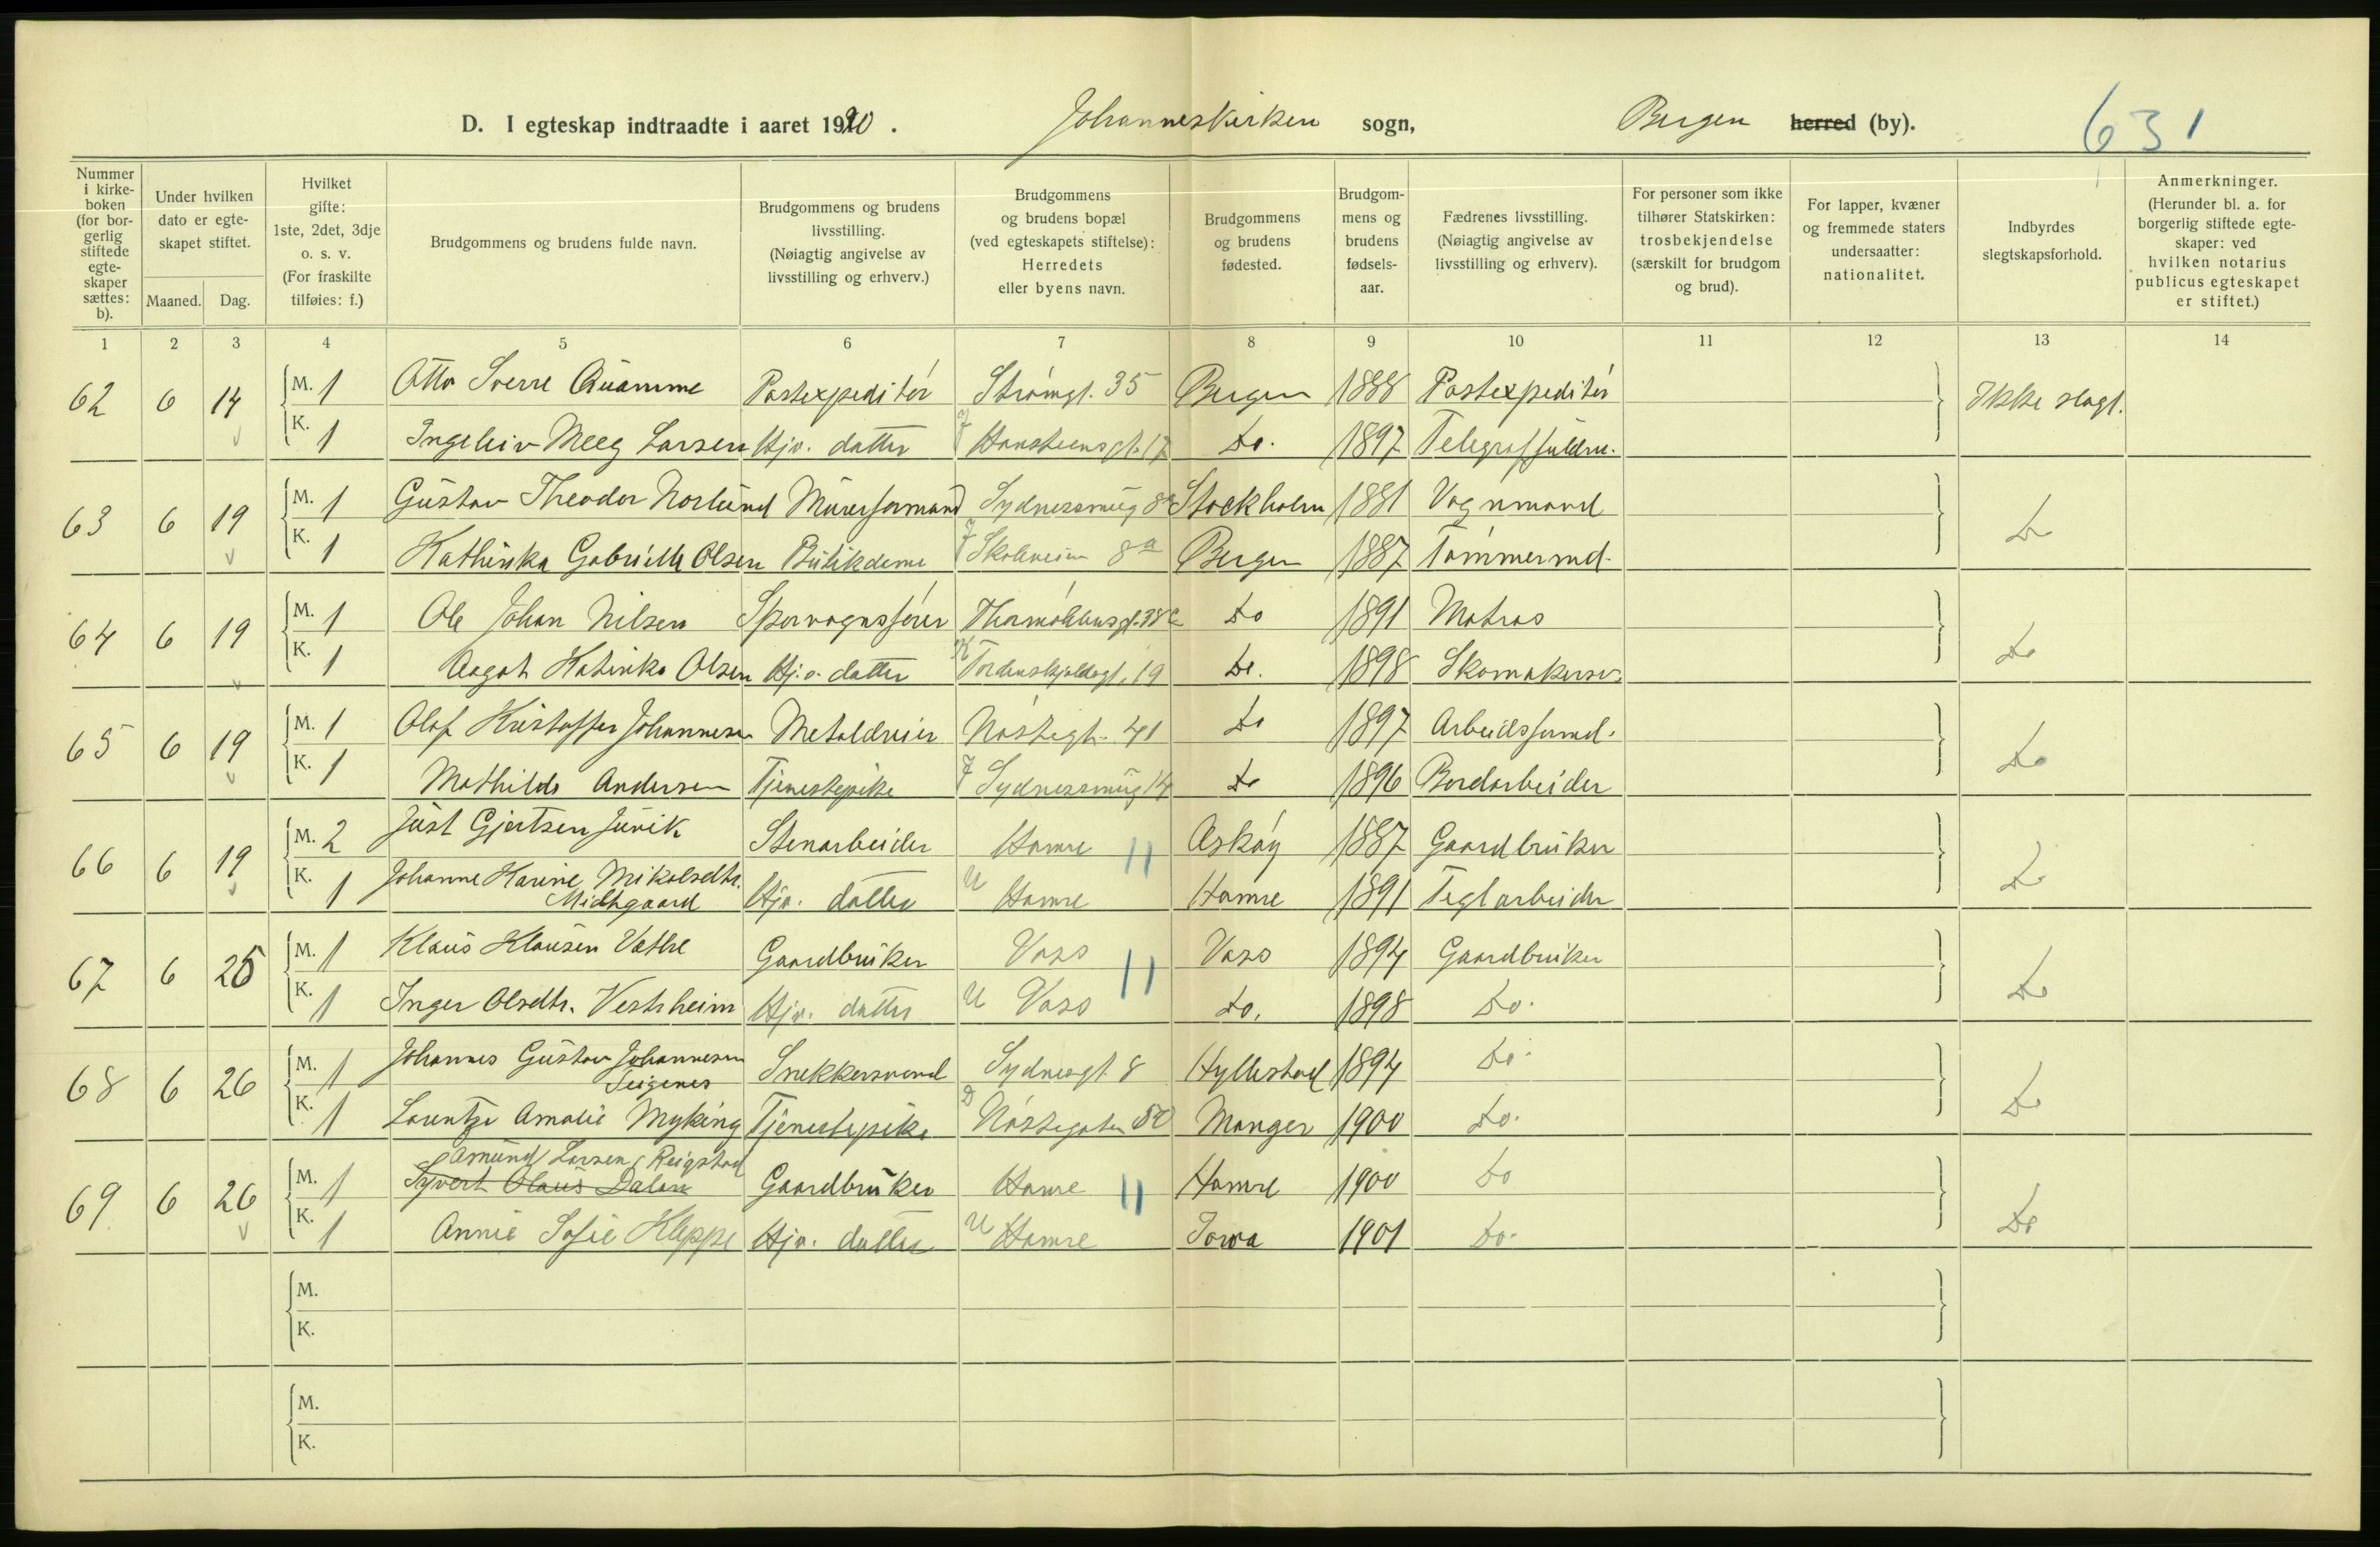 D. I egteskap indtraadte i aaret 1920. Johanneskirken sogn, Bergen herred (by). 631
Nummer i kirkeboken (for borgerlig stiftede egteskaper sættes: b).
Under hvilken dato er egteskapet stiftet.
Maaned. Dag.
Hvilket gifte: 1ste, 2det, 3dje o. s. v. (For fraskilte tilføies: f.)
Brudgommens og brudens fulde navn.
Brudgommens og brudens livsstilling. (Nøiagtig angivelse av livsstilling og erhverv.)
Brudgommens og brudens bopæl (ved egteskapets stiftelse): Herredets eller byens navn.
Brudgommens og brudens fødested.
Brudgommens og brudens fødselsaar.
Fædrenes livsstilling. (Nøiagtig angivelse av livsstilling og erhverv).
For personer som ikke tilhører Statskirken: trosbekjendelse (særskilt for brudgom og brud).
For lapper, kvæner og fremmede staters undersaatter: nationalitet.
Indbyrdes slegtskapsforhold.
Anmerkninger. (Herunder bl. a. for borgerlig stiftede egteskaper: ved hvilken notarius publicus egteskapet er stiftet.)
1 2 3 4 5 6 7 8 9 10 11 12 13 14
62 6 14 M. 1 Otto Sverre Quamme Postexpeditör Strömgt. 35 Bergen 1888 Postexpeditör Ikke slagt.
K. 1 Ingeleiv Meeg Larsen Hjv. datter Hansteensgt. 17 Do. 1897 Telegraffuldm.
63 6 19 M. 1 Gustav Theodor Norlund Murerformand Sydnessmug 8a Stockholm 1881 Vognmand Do
K. 1 Kathinka Gabrielle Olsen Butikdame Skoleveien 8a Bergen 1887 Tömmermd.
64 6 19 M. 1 Ole Johan Nilsen Sporvognsförer Thormöhlensgt. 38c Do 1891 Matros Do
K. 1 Aagot Katinka Olsen Hj.v. datter Tordenskjoldsgt. 19 Do. 1898 Skomakersv.
65 6 19 M. 1 Olaf Kristoffer Johannesen Metaldreier Nöstegt. 41 Do 1897 Arbeidsformd. Do
K. 1 Mathilde Andersen Tjenestepike Sydnessmug 14 Do 1896 Bordarbeider
66 6 19 M. 2 Just Gjertsen Juvik Stenarbeider Hamre Asköy 1887 Gaardbruker Do
K. 1 Johanne Karine Mikalsdtr. Midtgaard Hjv. datter U Hamre Hamre 1891 Teglarbeider
67 6 25 M. 1 Klaus Klausen Væthe Gaardbruker Voss Voss 1894 Gaardbruker Do
K. 1 Inger Olsdtr. Vestrheim Hjv. datter U Voss Do. 1898 Do.
68 6 26 M. 1 Johannes Gustav Johannesen Snekkersvend Sydnesgt. 8 Hyllestad 1894 Do. Do
K. 1 Lorentze Amalie Myking Tjenestepike Nöstegaten 50 Manger 1900 Do.
69 6 26 M. 1 Amund Larsen Reigstad
Syvert Olaus Dalen Gaardbruker Hamre Hamre 1900 Do Do
K. 1 Annie Sofie Kleppe Hjv. datter U Hamre Iowa 1901 Do.
M.
K.
M.
K.